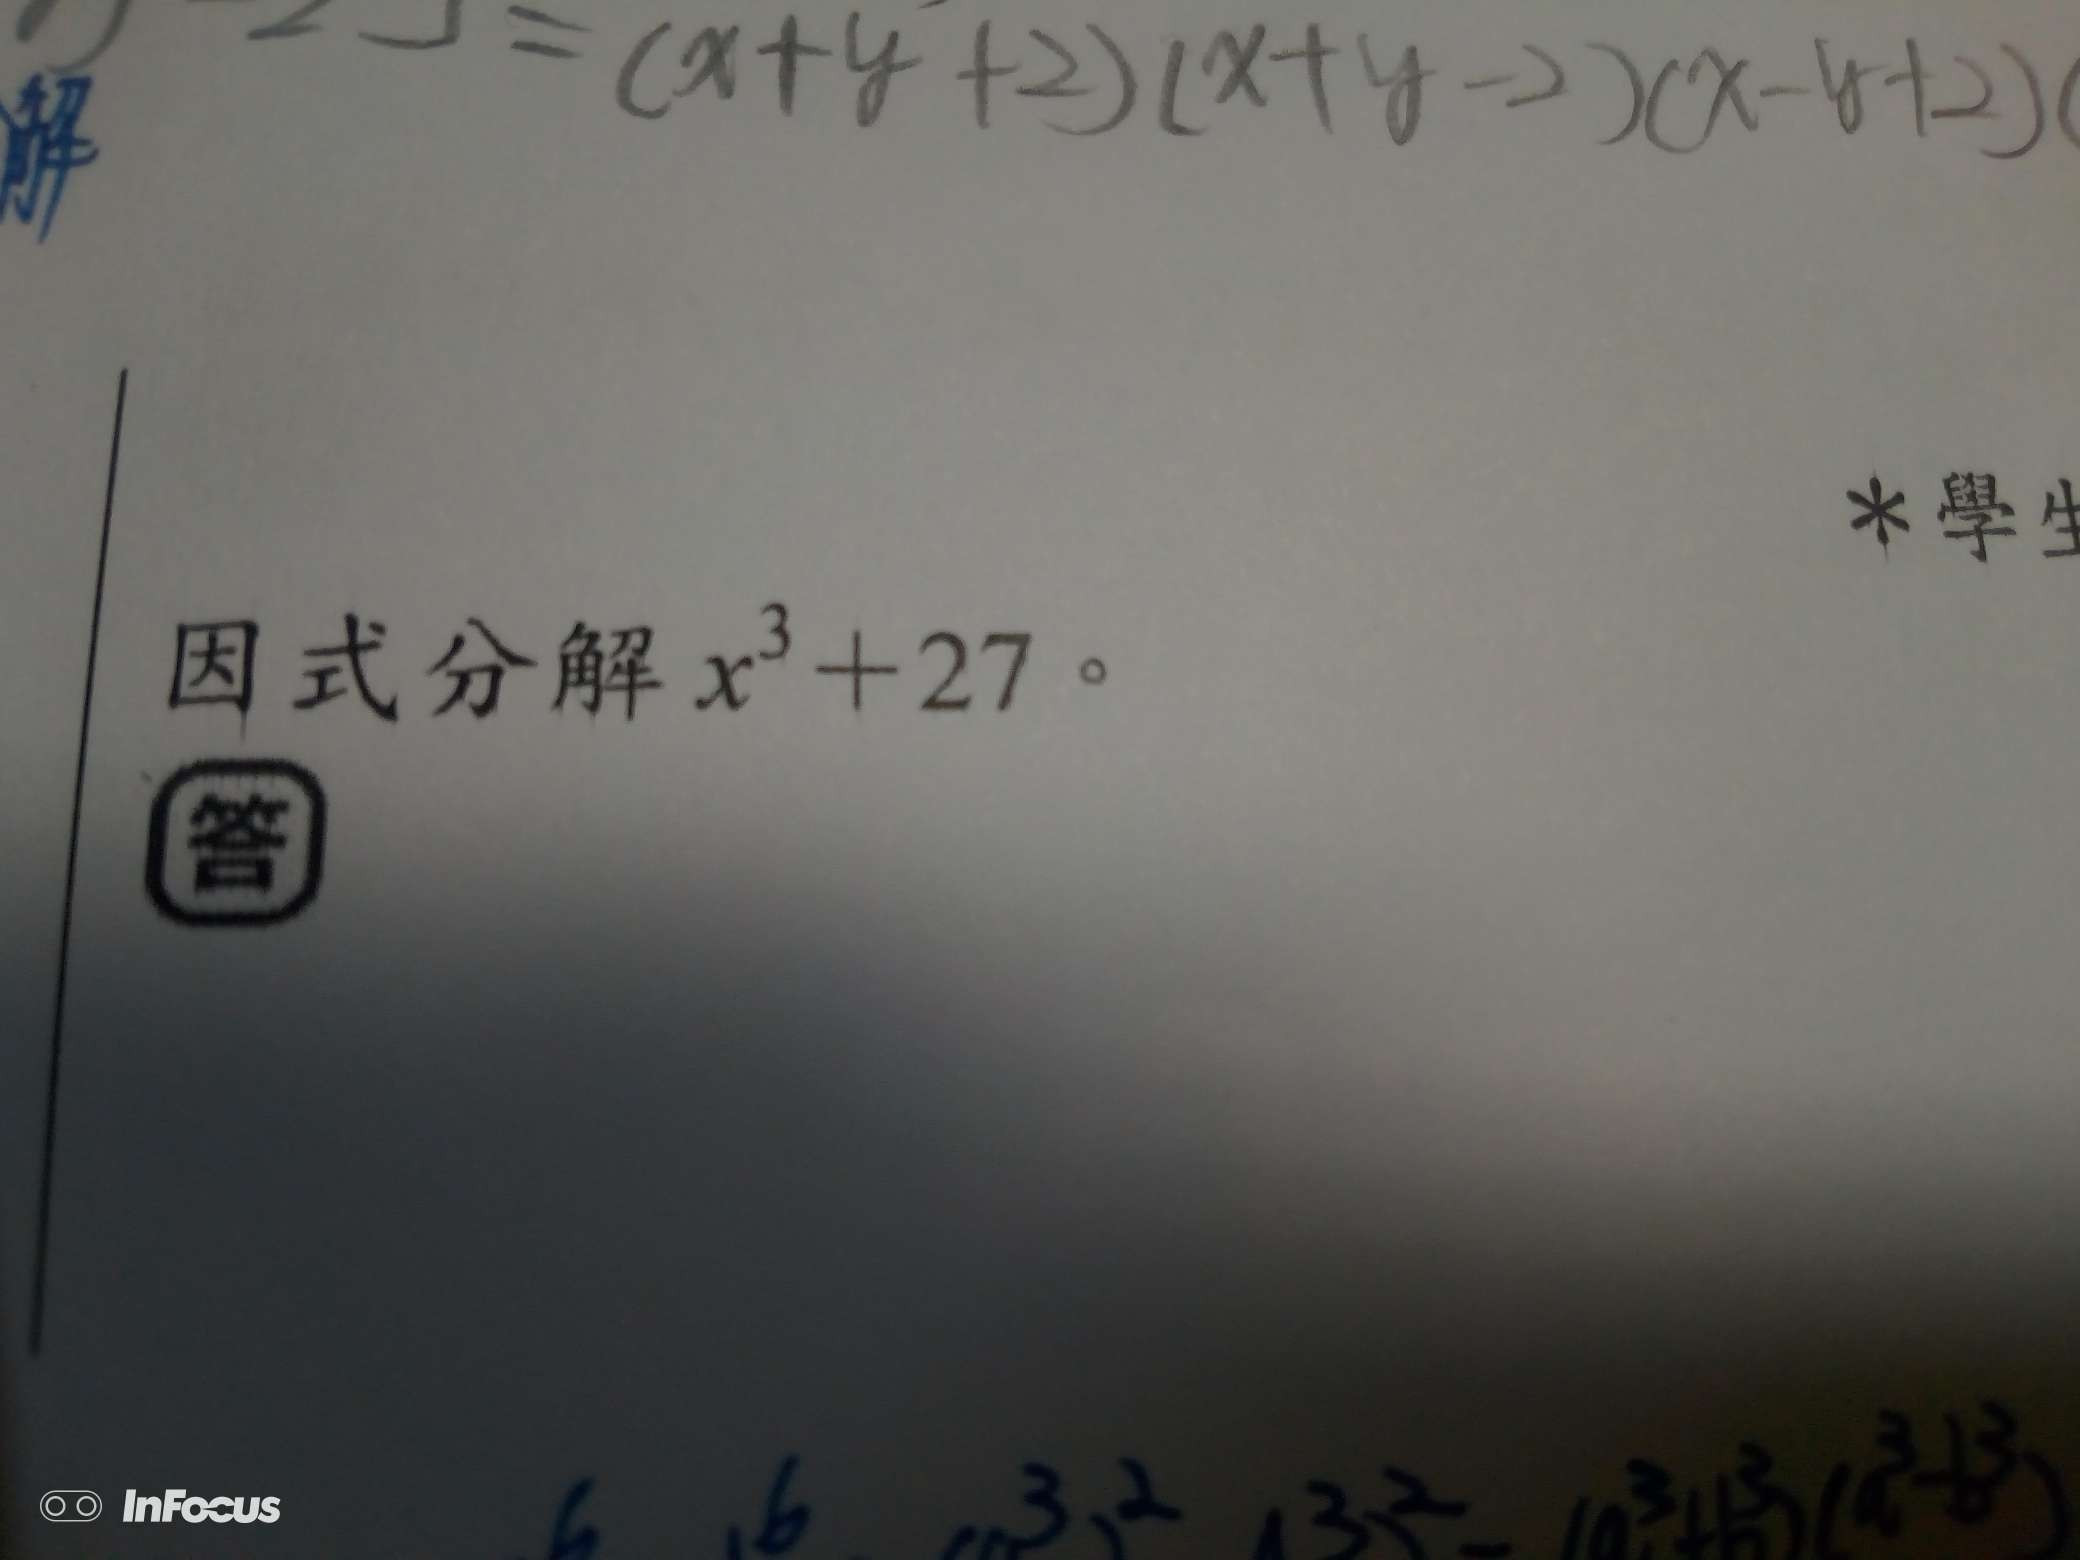 =(x+y+2)(x+y-2)(x-y+2)(
解
*學生
因式分解 x³+27。
答
InFocus